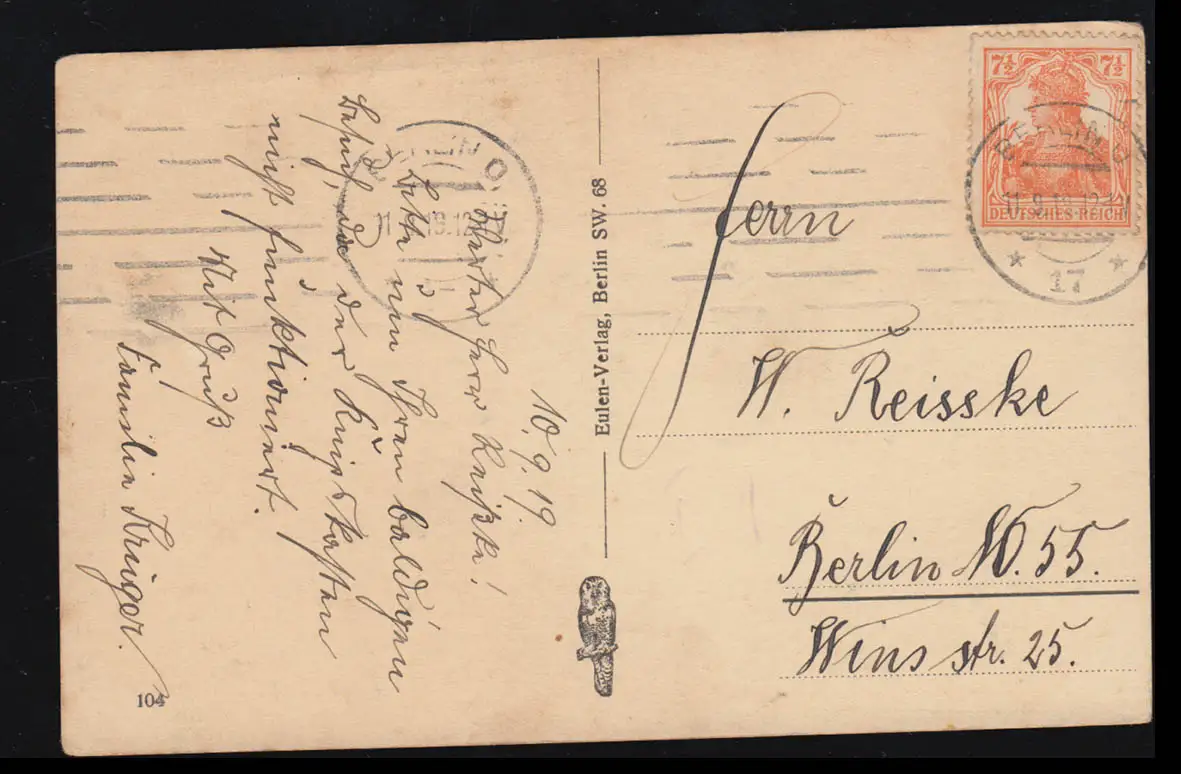 10.9.19.
Werter Herr Reißke!
Bitte um Ihren baldigen
Besuch, da der Klingelkasten
nicht funktioniert.
Mit Gruß
Familie Krüger.
104
Eulen-Verlag, Berlin SW. 68
7½ 7½
DEUTSCHES REICH
BERLIN O
11.9.19.12
* 17 *
Herrn
W. Reisske
Berlin NO. 55.
Winsstr. 25.